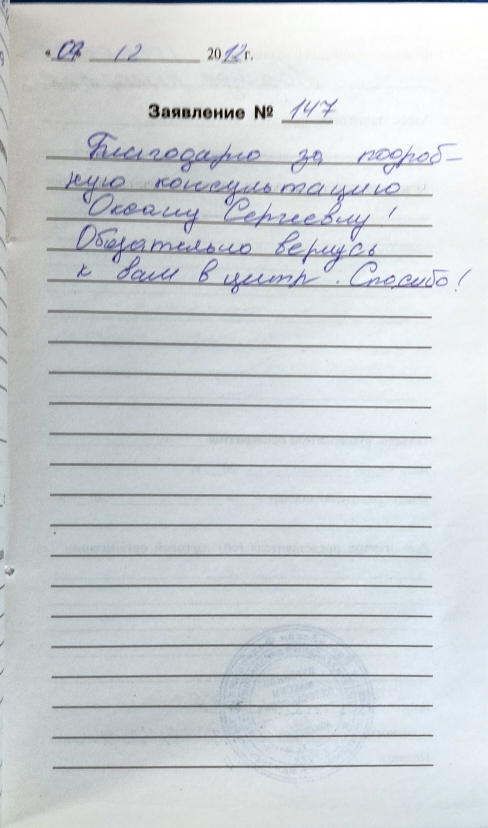 « 04 » 12 2012 г.
Заявление № 147
Благодарю за подроб-
ную консультацию
Оксану Сергеевну!
Обязательно вернусь
к вам в центр. Спасибо!